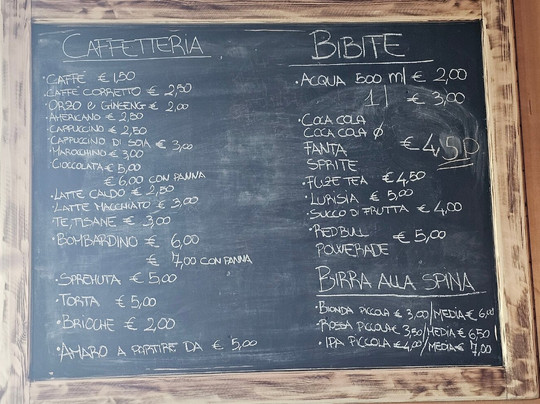 CAFFETTERIA
• CAFFÈ € 1,50
CAFFÈ CORRETTO € 2,50
• ORZO & GINSENG € 2,00
• AMERICANO € 2,50
• CAPPUCCINO € 2,50
• CAPPUCCINO DI SOIA € 3,00
• MAROCCHINO € 3,00
• CIOCCOLATA € 5,00
€ 6,00 CON PANNA
• LATTE CALDO € 2,50
• LATTE MACCHIATO € 3,00
TE, TISANE € 3,00
• BOMBARDINO € 6,00
€ 7,00 CON PANNA
• SPREMUTA € 5,00
• TORTA € 5,00
• BRIOCHE € 2,00
• AMARO A PARTIRE DA € 5,00
BIBITE
• ACQUA 500 ml € 2,00
1 l € 3,00
• COCA COLA
COCA COLA Ø
FANTA € 4,50
SPRITE
• FUZE TEA € 4,50
• LURISIA € 5,00
• SUCCO DI FRUTTA € 4,00
• REDBULL € 5,00
POWERADE
BIRRA ALLA SPINA
• BIONDA PICCOLA € 3,00 / MEDIA € 6,00
• ROSSA PICCOLA € 3,50 / MEDIA € 6,50
• IPA PICCOLA € 4,00 / MEDIA € 7,00